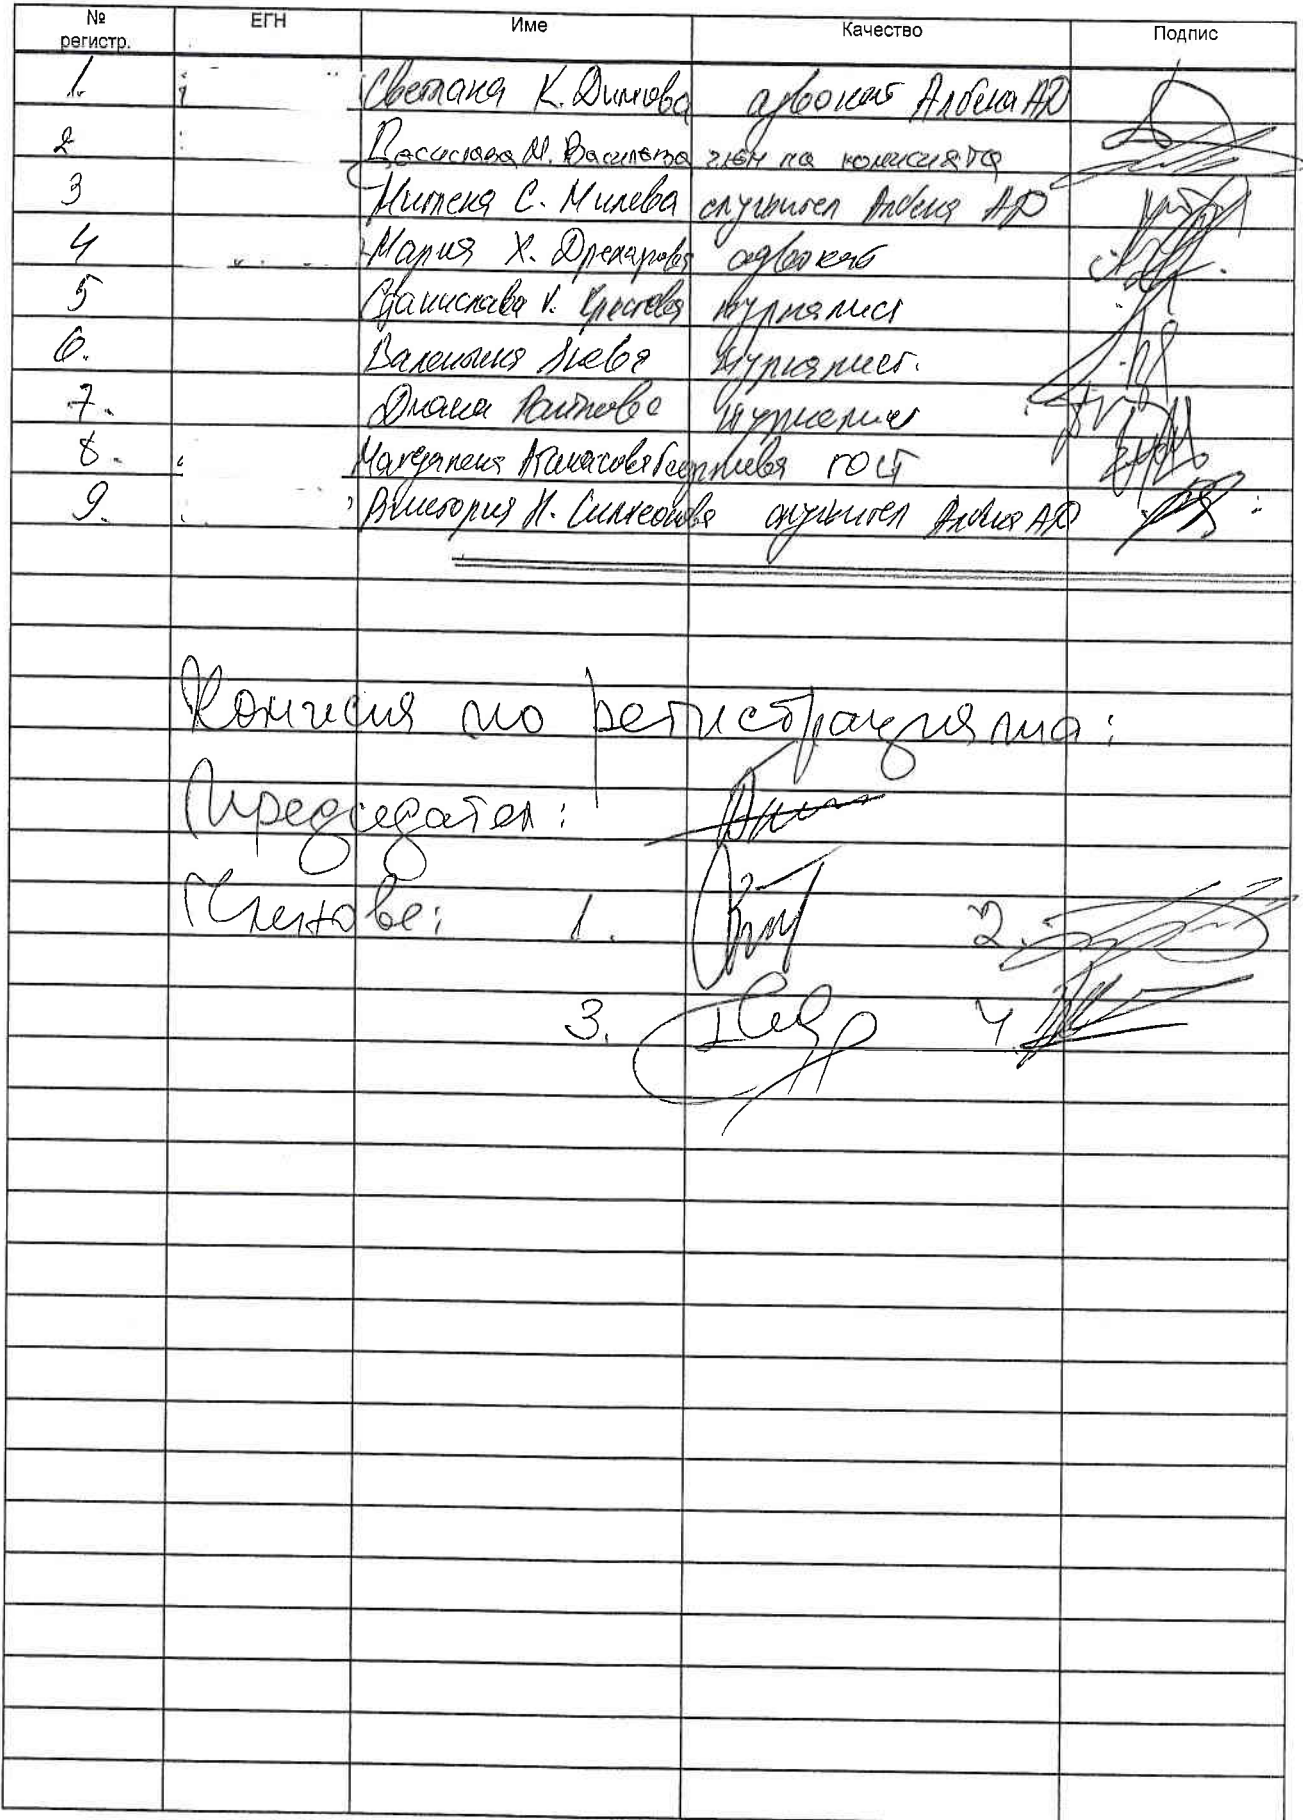 № регистр. ЕГН Име Качество Подпис
1. Светлана К. Димова адвокат Албена АД
2 М. Василева член на комисията
3 Милена С. Милева служител Албена АД
4 Мария Х. адвокат
5 Станислава журналист
6. Валентина журналист.
7. Диана журналист
8. Магдалена Атанасова Георгиева гост
9. Виктория Н. Симеонова служител Албена АД
Комисия по регистрацията:
Председател:
Членове: 1. 2.
3. 4.